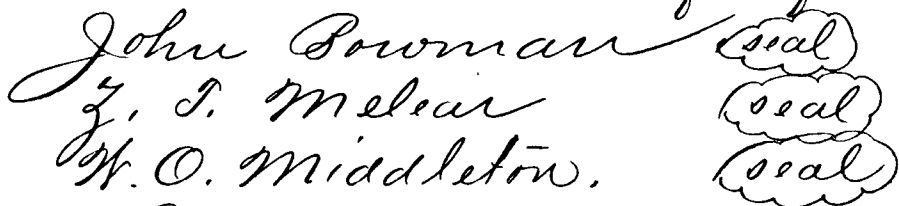 John Bowman seal
Z. T. Melear seal
W. O. Middleton. seal